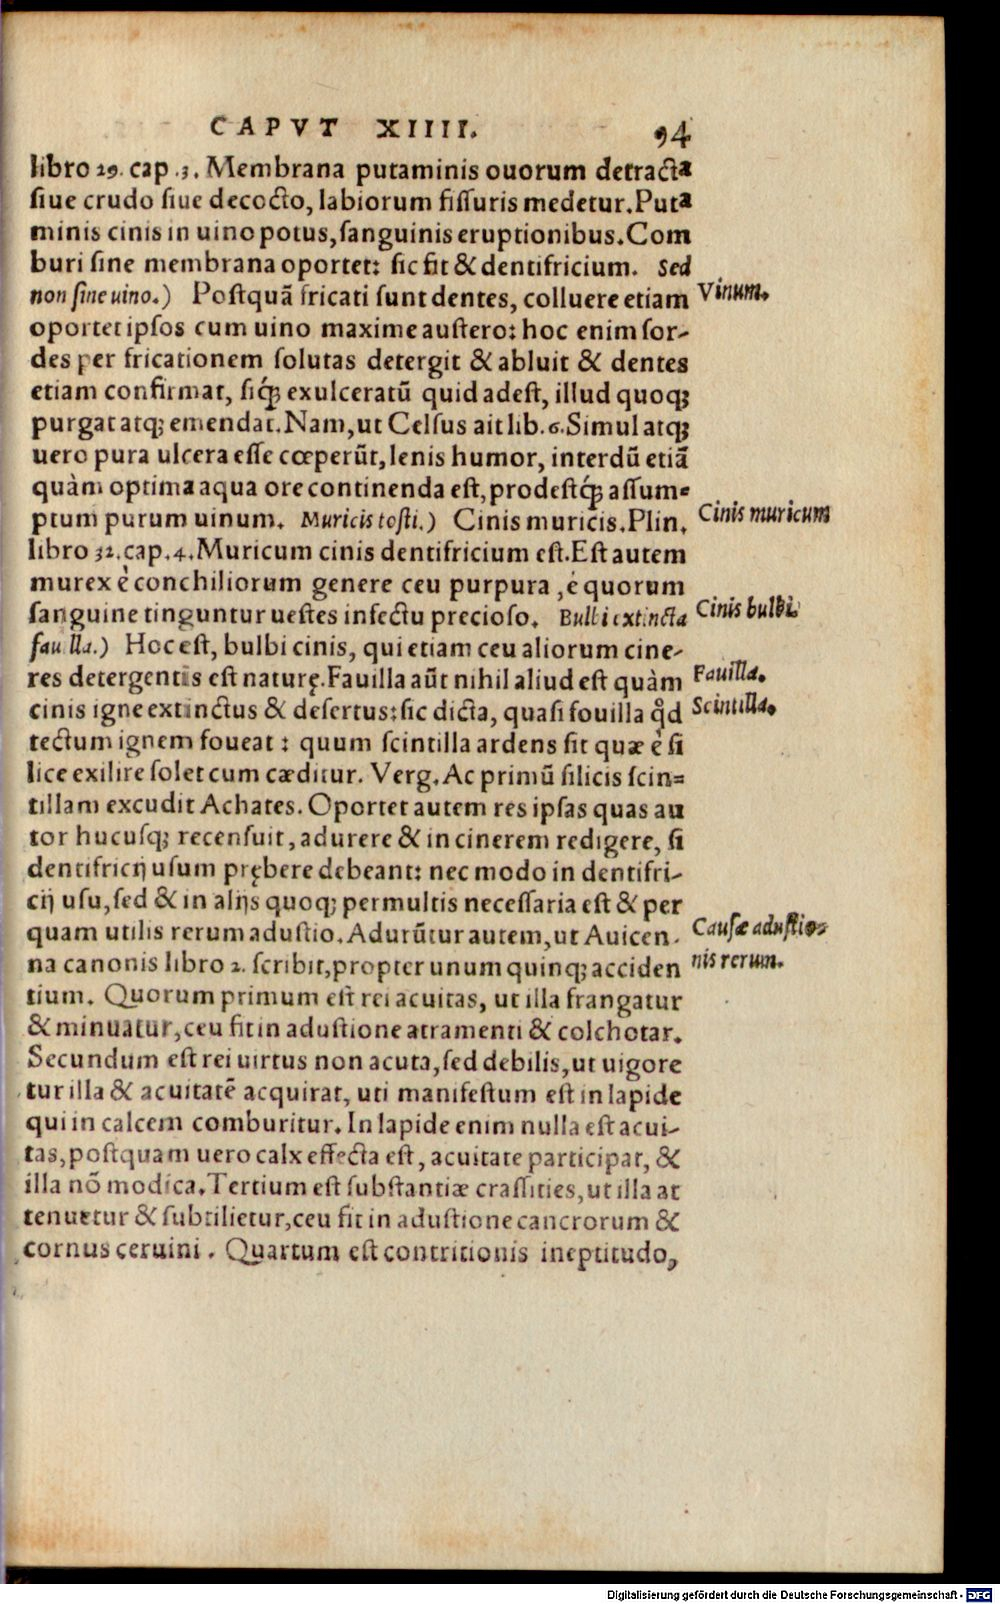 CAPVT XIIII. 94
libro 29. cap .3. Membrana putaminis ouorum detracta
siue crudo siue decocto, labiorum fissuris medetur. Puta
minis cinis in uino potus, sanguinis eruptionibus. Com
buri sine membrana oportet: sic fit & dentifricium. Sed
non sine uino.) Postquã fricati sunt dentes, colluere etiam
Vinum.
oportet ipsos cum uino maxime austero: hoc enim sor-
des per fricationem solutas detergit & abluit & dentes
etiam confirmat, siq́; exulceratũ quid adest, illud quoq;
purgat atq; emendat. Nam, ut Celsus ait lib. 6. Simul atq;
uero pura ulcera esse cœperũt, lenis humor, interdũ etiã
quàm optima aqua ore continenda est, prodestq́; assum=
ptum purum uinum. Muricis tosti.) Cinis muricis. Plin.
Cinis muricum
libro 32. cap. 4. Muricum cinis dentifricium est. Est autem
murex è conchiliorum genere ceu purpura, è quorum
sanguine tinguntur uestes infectu precioso. Bulbi extincta
Cinis bulbi.
fauilla.) Hoc est, bulbi cinis, qui etiam ceu aliorum cine-
res detergentis est naturę. Fauilla aũt nihil aliud est quàm
Fauilla.
cinis igne extinctus & desertus: sic dicta, quasi fouilla q̊d
Scintilla.
tectum ignem foueat: quum scintilla ardens sit quæ è si
lice exilire solet cum cæditur. Verg. Ac primũ silicis scin=
tillam excudit Achates. Oportet autem res ipsas quas au
tor hucusq; recensuit, adurere & in cinerem redigere, si
dentifricij usum prębere debeant: nec modo in dentifri-
cij usu, sed & in alijs quoq; permultis necessaria est & per
quam utilis rerum adustio. Adurũtur autem, ut Auicen-
Causæ adustio=
na canonis libro 2. scribit, propter unum quinq; acciden
nis rerum.
tium. Quorum primum est rei acuitas, ut illa frangatur
& minuatur, ceu fit in adustione atramenti & colchotar.
Secundum est rei uirtus non acuta, sed debilis, ut uigore
tur illa & acuitatẽ acquirat, uti manifestum est in lapide
qui in calcem comburitur. In lapide enim nulla est acui-
tas, postquam uero calx effecta est, acuitate participat, &
illa nõ modica. Tertium est substantiæ crassities, ut illa at
tenuetur & subtilietur, ceu fit in adustione cancrorum &
cornus ceruini. Quartum est contritionis ineptitudo,
Digitalisierung gefördert durch die Deutsche Forschungsgemeinschaft - DFG